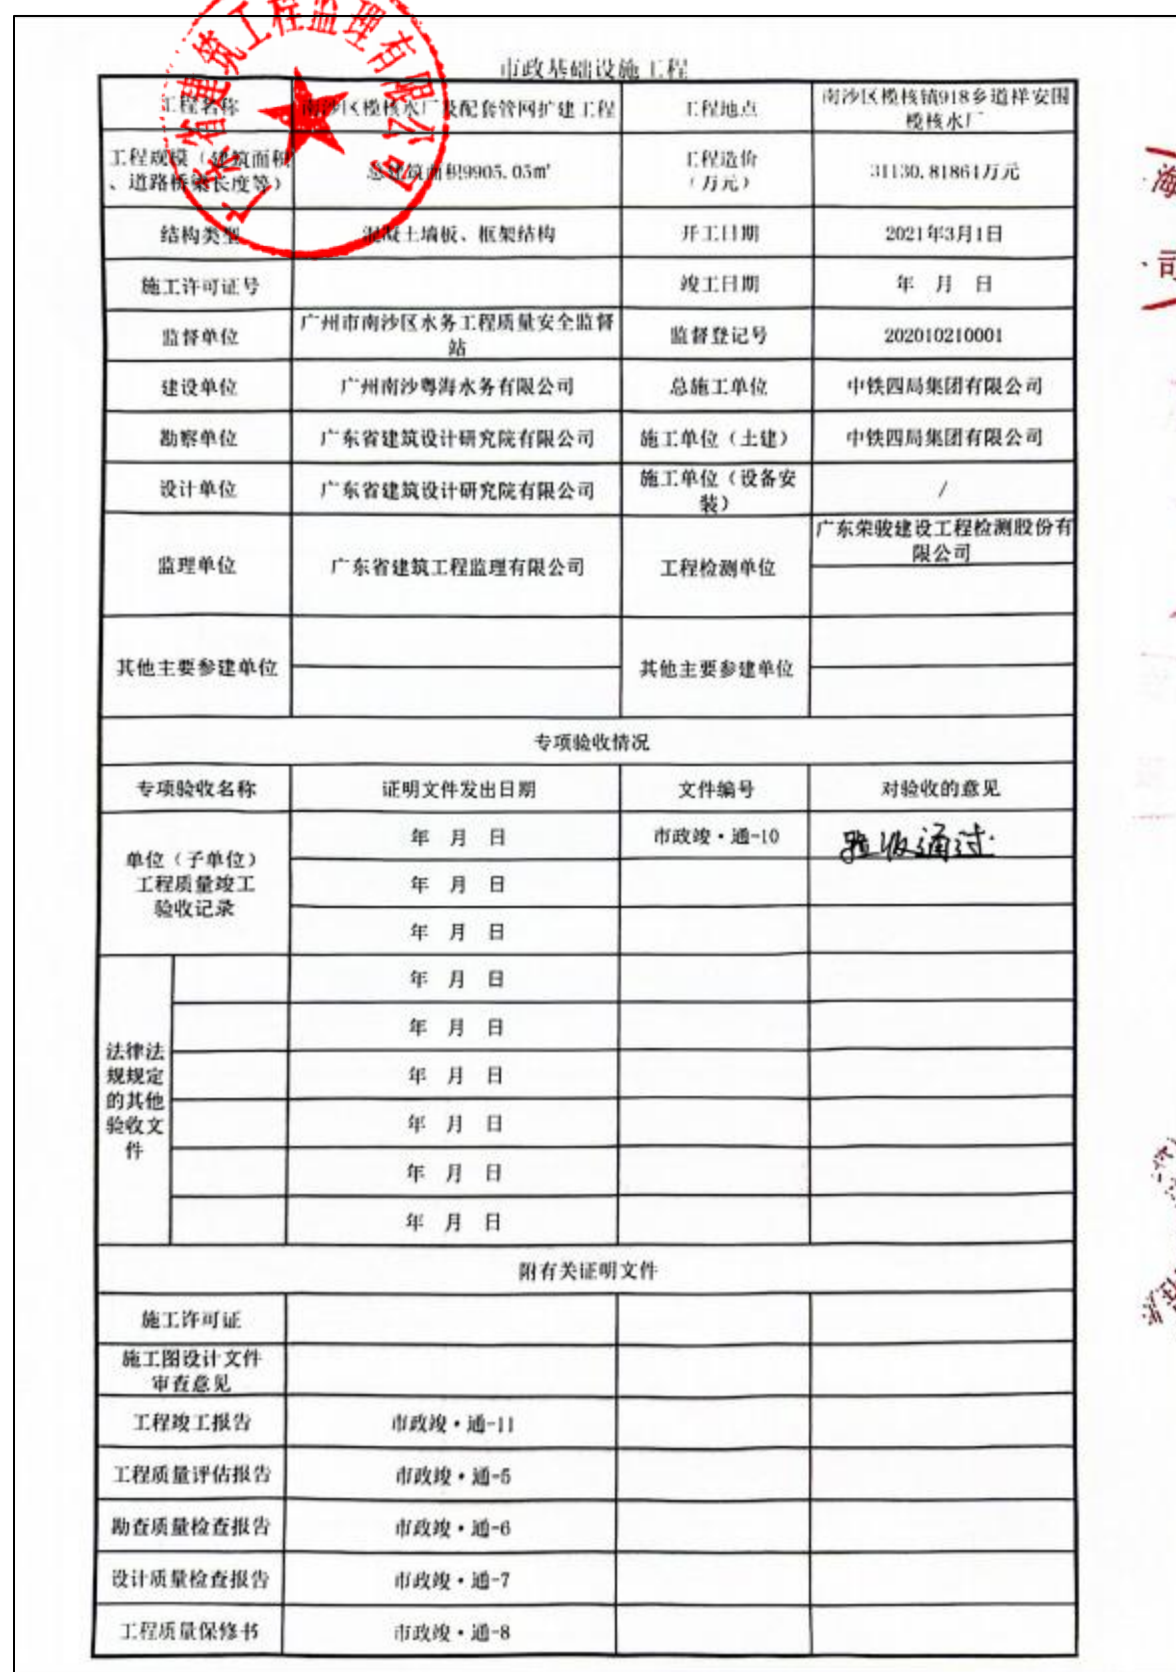 市政基础设施工程
工程名称 南沙区榄核水厂及配套管网扩建工程 工程地点 南沙区榄核镇918乡道祥安围
榄核水厂
工程规模（建筑面积
、道路桥梁长度等） 总建筑面积9905.05㎡ 工程造价
（万元） 31130.81861万元
结构类型 混凝土墙板、框架结构 开工日期 2021年3月1日
施工许可证号 竣工日期 年 月 日
监督单位 广州市南沙区水务工程质量安全监督
站 监督登记号 202010210001
建设单位 广州南沙粤海水务有限公司 总施工单位 中铁四局集团有限公司
勘察单位 广东省建筑设计研究院有限公司 施工单位（土建） 中铁四局集团有限公司
设计单位 广东省建筑设计研究院有限公司 施工单位（设备安
装） /
监理单位 广东省建筑工程监理有限公司 工程检测单位 广东荣骏建设工程检测股份有
限公司
其他主要参建单位 其他主要参建单位
专项验收情况
专项验收名称 证明文件发出日期 文件编号 对验收的意见
单位（子单位）
工程质量竣工
验收记录
年 月 日 市政竣·通-10 验收通过.
年 月 日
年 月 日
法律法
规规定
的其他
验收文
件
年 月 日
年 月 日
年 月 日
年 月 日
年 月 日
年 月 日
附有关证明文件
施工许可证
施工图设计文件
审查意见
工程竣工报告 市政竣·通-11
工程质量评估报告 市政竣·通-5
勘查质量检查报告 市政竣·通-6
设计质量检查报告 市政竣·通-7
工程质量保修书 市政竣·通-8
广东省建筑工程监理有限公司
海
司